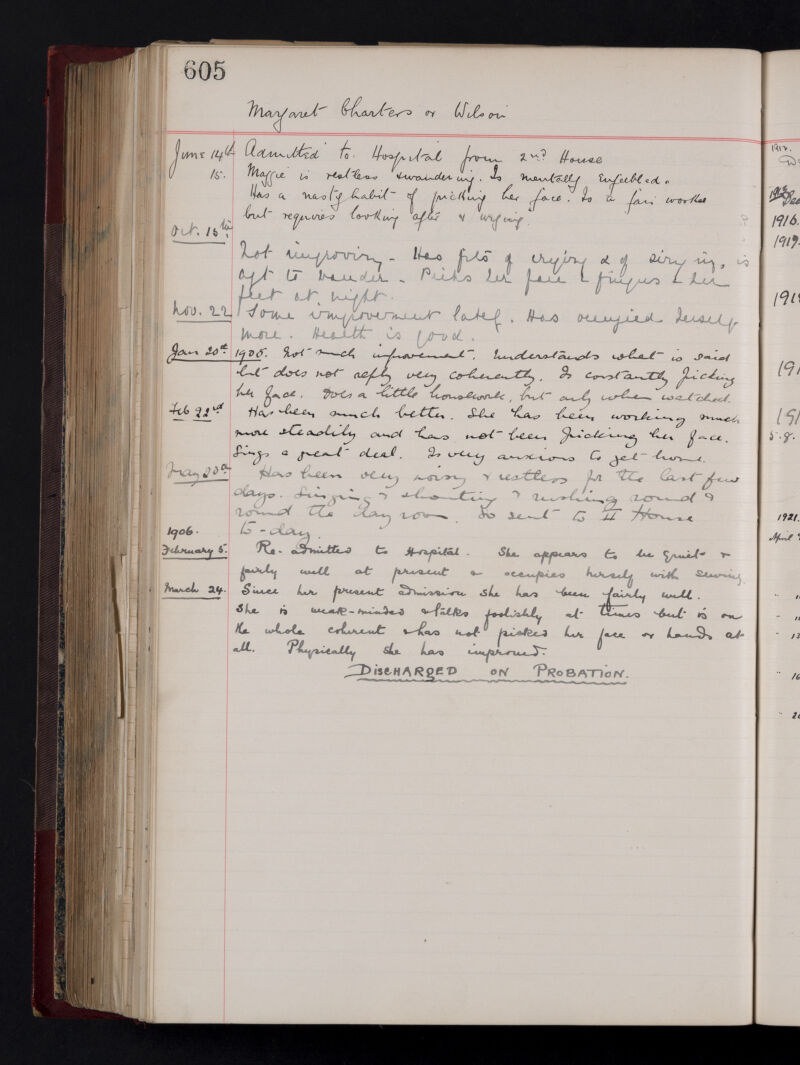 605
Margaret Charters or Wilson
June 14th Admitted to Hospital from 2nd House
15. Maggie is restless & wandering. Is mentally Enfeebled.
Has a nasty habit of picking her face. Is a fair worker
but requires looking after & urging.
Oct. 15th
Not improving - Has fits of crying & of singing, is
apt to wander - Picks her face & fingers & her
feet at night.
Nov. 22 Some improvement lately. Has occupied herself
more. Health is good.
Jan 20th 1905. Not much improvement. Understands what is said
but does not reply very coherently. Is constantly picking
her face. Does a little housework, but only when watched.
Feb 22nd Has been much better. She has been working much
more steadily and has not been picking her face.
Sings a great deal. Is very anxious to get home.
May 20th Has been very noisy & restless for the last few
days. Singing & shouting & rushing round &
round the day room. So sent to II House
to-day.
1906.
February 5. Re-admitted to Hospital. She appears to be quiet &
fairly well at present & occupies herself with sewing.
March 24. Since her present admission she has been fairly well.
She is weak-minded & talks foolishly at times but is on
the whole coherent & has not picked her face or hands at
all. Physically she has improved.
DISCHARGED ON PROBATION.
1916.
1919.
191
191
191
5.8.
1921.
April